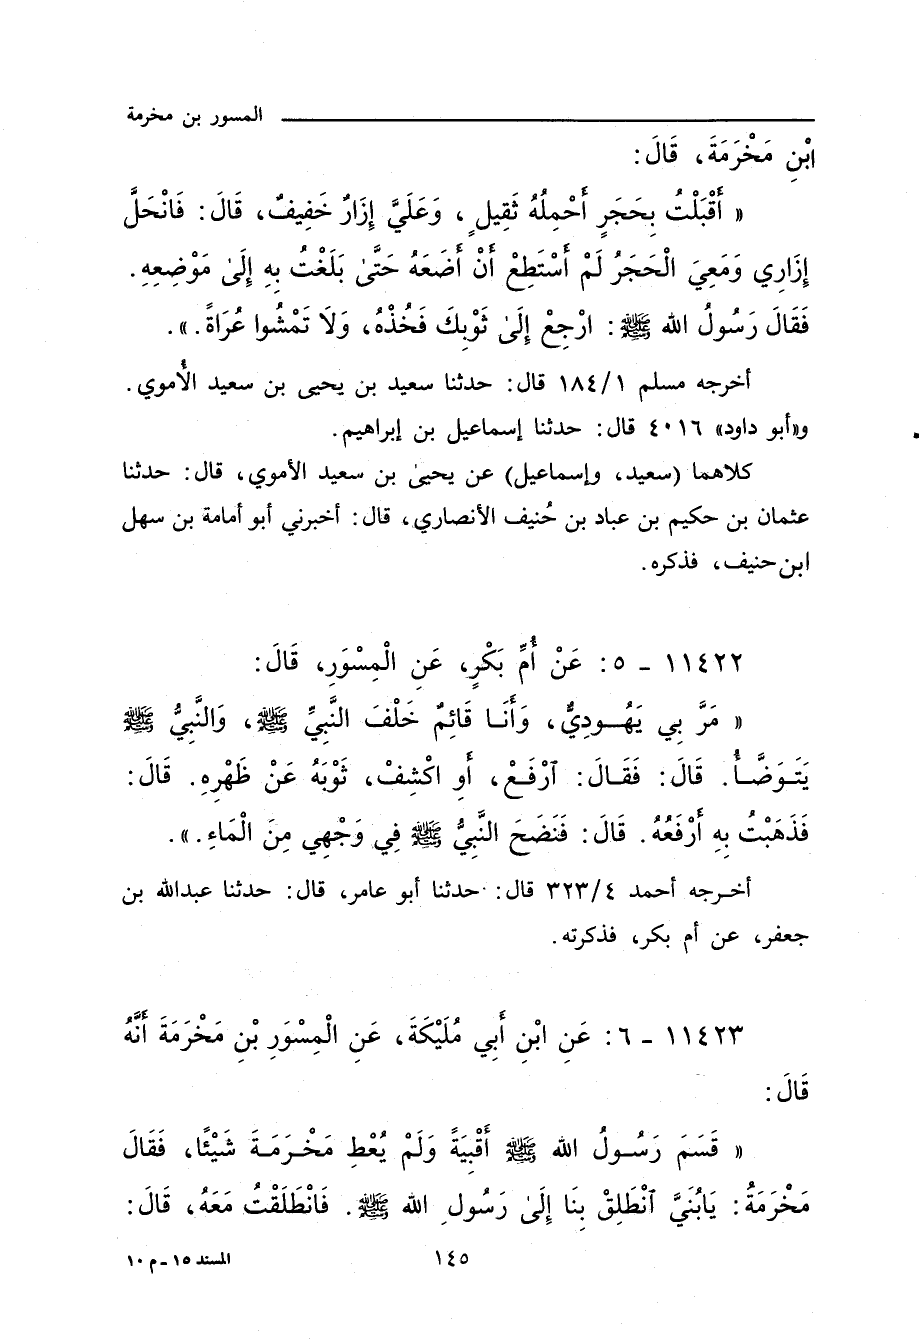 المسور بن مخرمة
ابْنِ مَخْرَمَةَ، قَالَ:
« أَقْبَلْتُ بِحَجَرٍ أَحْمِلُهُ ثَقِيلٍ، وَعَلَيَّ إِزَارٌ خَفِيفٌ، قَالَ: فَانْحَلَّ
إِزَارِي وَمَعِيَ الْحَجَرُ لَمْ أَسْتَطِعْ أَنْ أَضَعَهُ حَتَّىٰ بَلَغْتُ بِهِ إِلَىٰ مَوْضِعِهِ.
فَقَالَ رَسُولُ الله ﷺ: ارْجِعْ إِلَىٰ ثَوْبِكَ فَخُذْهُ، وَلَا تَمْشُوا عُرَاةً.».
أخرجه مسلم ١/١٨٤ قال: حدثنا سعيد بن يحيى بن سعيد الأُموي.
و«أبو داود» ٤٠١٦ قال: حدثنا إسماعيل بن إبراهيم.
كلاهما (سعيد، وإسماعيل) عن يحيىٰ بن سعيد الأموي، قال: حدثنا
عثمان بن حكيم بن عباد بن حُنيف الأنصاري، قال: أخبرني أبو أمامة بن سهل
ابن حنيف، فذكره.
١١٤٢٢ - ٥: عَنْ أُمِّ بَكْرٍ، عَنِ الْمِسْوَرِ، قَالَ:
« مَرَّ بِي يَهُودِيٌّ، وَأَنَا قَائِمٌ خَلْفَ النَّبِيِّ ﷺ، وَالنَّبِيُّ ﷺ
يَتَوَضَّأُ. قَالَ: فَقَالَ: ٱرْفَعْ، أَوِ اكْشِفْ، ثَوْبَهُ عَنْ ظَهْرِهِ. قَالَ:
فَذَهَبْتُ بِهِ أَرْفَعُهُ. قَالَ: فَنَضَحَ النَّبِيُّ ﷺ فِي وَجْهِي مِنَ الْمَاءِ.».
أخرجه أحمد ٤/٣٢٣ قال: حدثنا أبو عامر، قال: حدثنا عبدالله بن
جعفر، عن أم بكر، فذكرته.
١١٤٢٣ - ٦: عَنِ ابْنِ أَبِي مُلَيْكَةَ، عَنِ الْمِسْوَرِ بْنِ مَخْرَمَةَ أَنَّهُ
قَالَ:
« قَسَمَ رَسُولُ الله ﷺ أَقْبِيَةً وَلَمْ يُعْطِ مَخْرَمَةَ شَيْئًا، فَقَالَ
مَخْرَمَةُ: يَابُنَيَّ ٱنْطَلِقْ بِنَا إِلَىٰ رَسُولِ الله ﷺ. فَانْطَلَقْتُ مَعَهُ، قَالَ:
١٤٥
المسند ١٥ - م ١٠